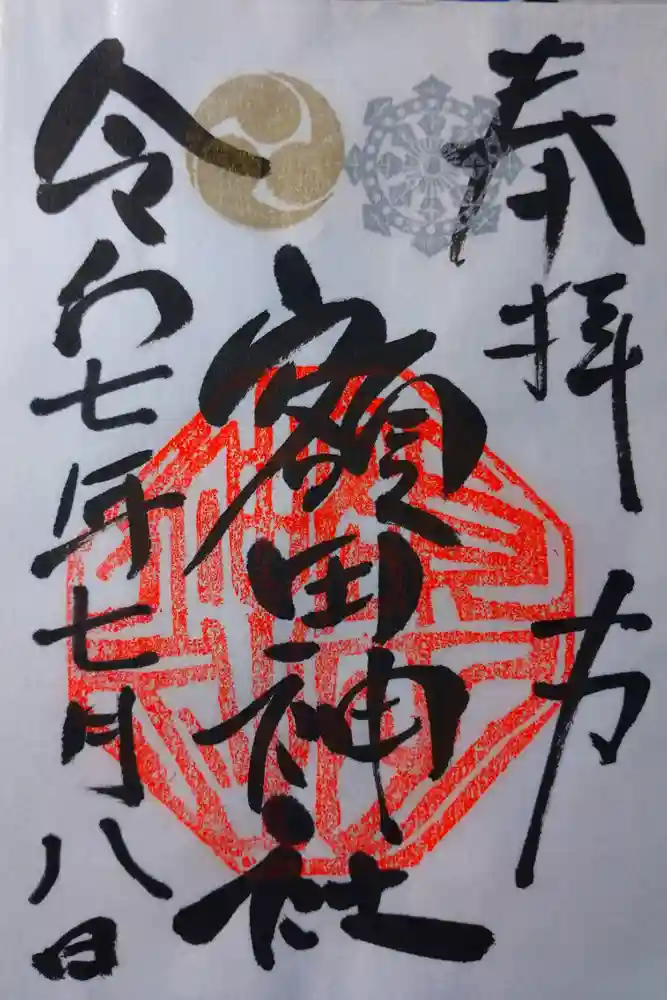 奉拝
額田神社
令和七年七月八日